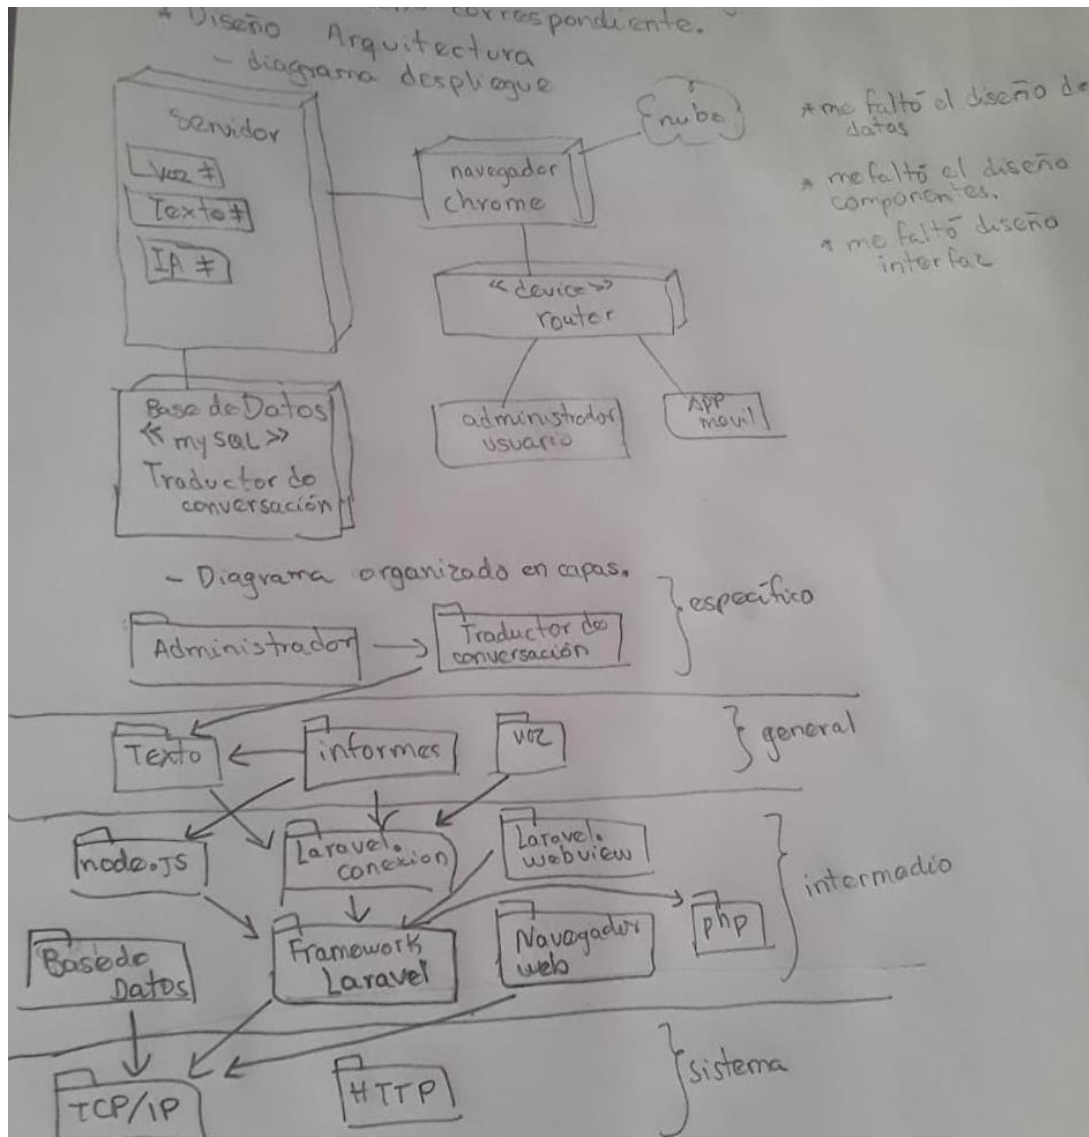 correspondiente.
* Diseño Arquitectura
- diagrama despliegue
Servidor
voz
Texto
IA
navegador
chrome
nube
* me faltó el diseño de
datos
* me faltó el diseño
componentes.
* me faltó diseño
interfaz
<<device>>
router
Base de Datos
<<mySQL>>
Traductor de
conversación
administrador
usuario
APP
movil
- Diagrama organizado en capas.
Administrador
Traductor de
conversación
específico
Texto
informes
voz
general
node.JS
Laravel.
conexion
Laravel.
webview
intermedio
Base de
Datos
Framework
Laravel
Navegador
web
php
TCP/IP
HTTP
sistema